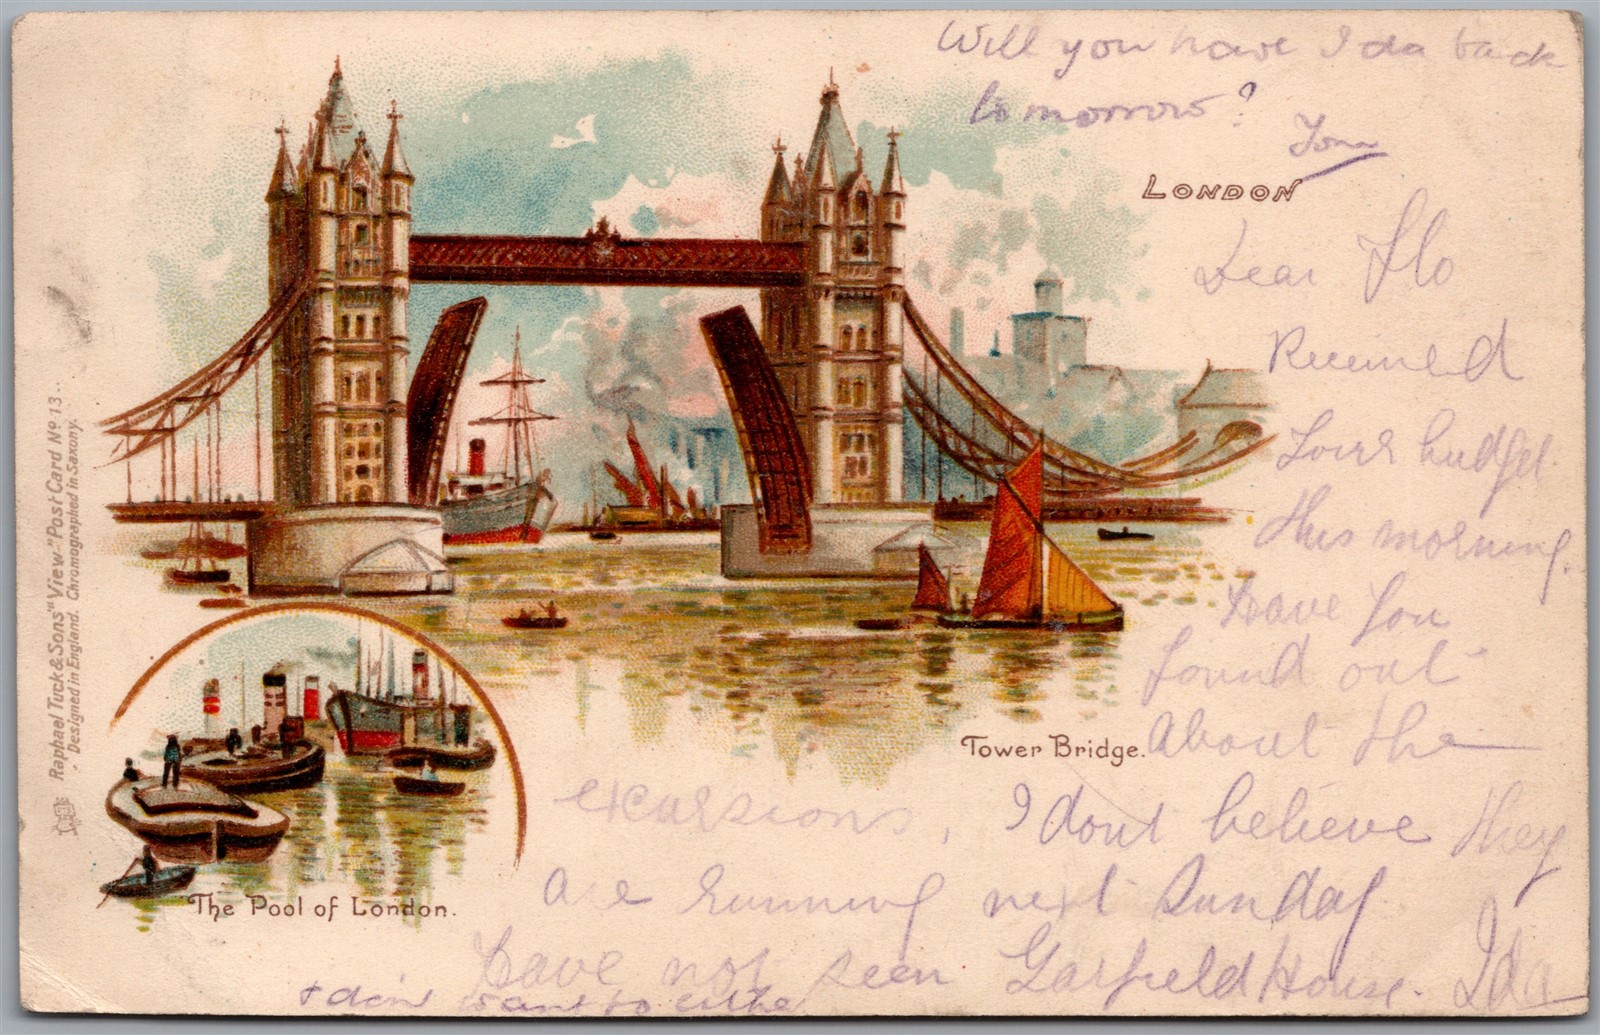 Will you have Ida back
tomorrow?
Tom
LONDON
Dear Flo
Received
Your budget
this morning.
Have you
found out
About the
excursions, I dont believe they
are running next Sunday
have not seen Garfield House. Ida
& don't want to either
Tower Bridge.
The Pool of London.
Raphael Tuck & Sons' "View" Post Card Nº 13.
Designed in England. Chromographed in Saxony.